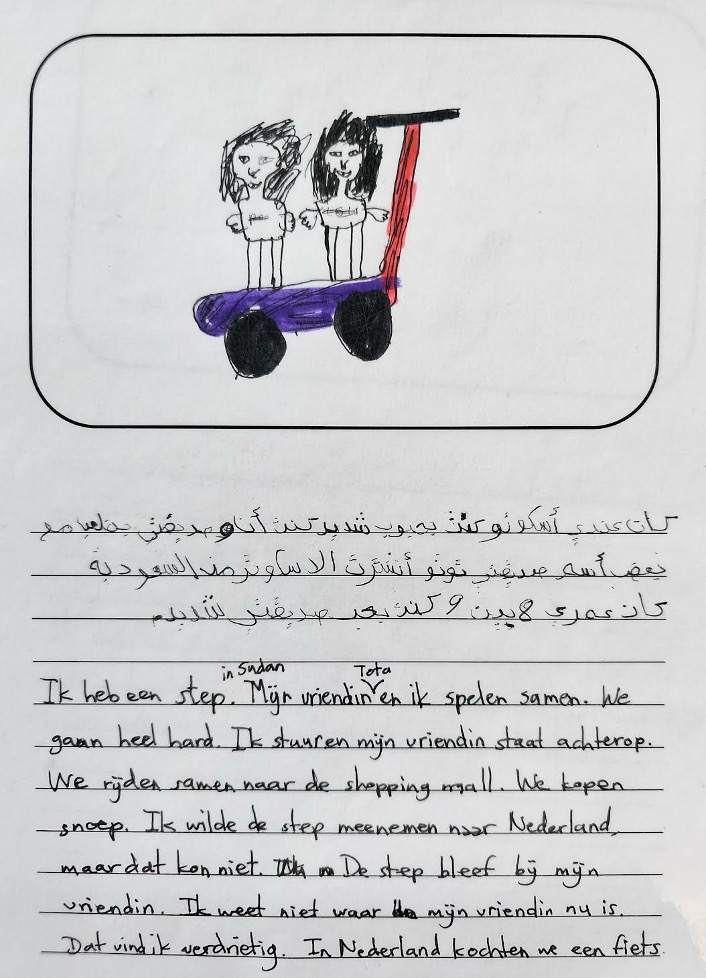 كان عندي أسكوتو كنت بحبوب شديد كنت أنا و صديقتي بنلعب مع
بعض أسم صديقتي توتو أنشترت الاسكوتر من السعودية
كان عمري 8 بين 9 كنت بحب صديقتي شديد.
in Sudan Tota
Ik heb een step. Mijn vriendin en ik spelen samen. We
gaan heel hard. Ik stuur en mijn vriendin staat achterop.
We rijden samen naar de shopping mall. We kopen
snoep. Ik wilde de step meenemen naar Nederland,
maar dat kon niet. De step bleef bij mijn
vriendin. Ik weet niet waar mijn vriendin nu is.
Dat vind ik verdrietig. In Nederland kochten we een fiets.